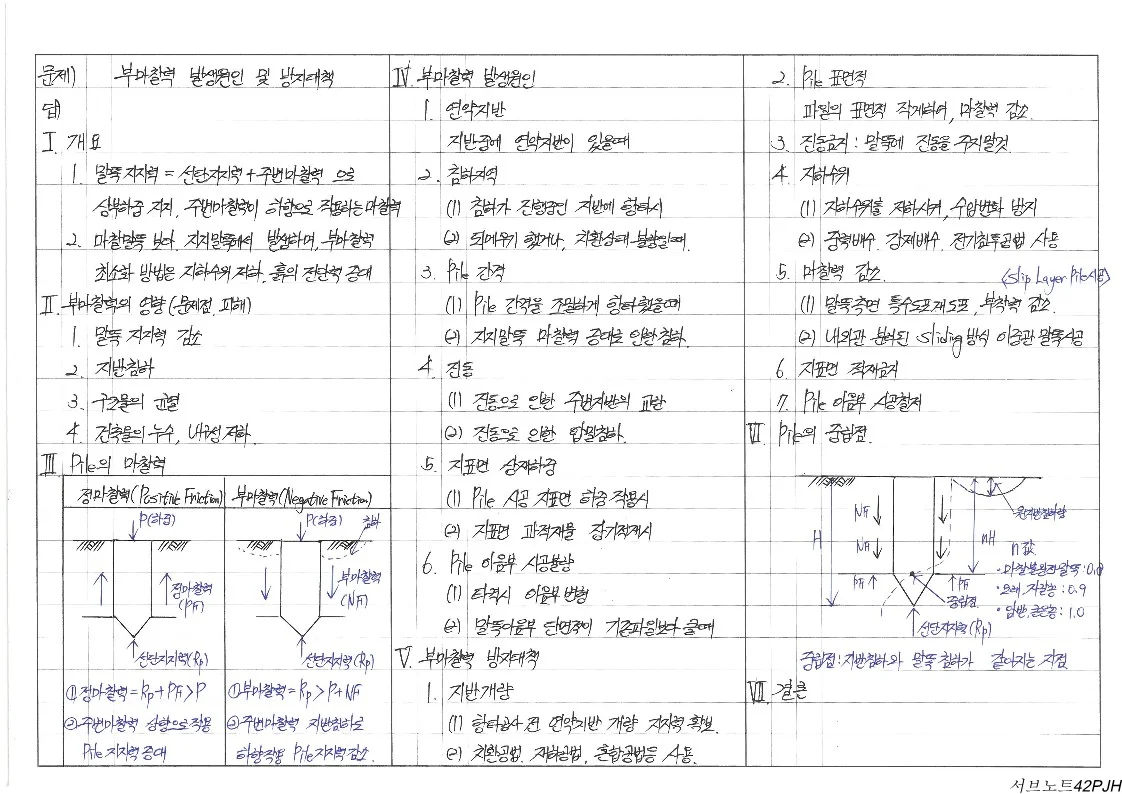 문제) 부마찰력 발생원인 및 방지대책
답)
I. 개요
1. 말뚝지지력 = 선단지지력 + 주변마찰력 으로
상부하중 지지, 주변마찰력이 하향으로 작용하는 마찰력
2. 마찰말뚝 보다, 지지말뚝에서 발생하며, 부마찰력
최소화 방법은 지하수위 저하, 흙의 전단력 증대
II. 부마찰력의 영향 (문제점, 피해)
1. 말뚝 지지력 감소
2. 지반침하
3. 구조물의 균열
4. 건축물의 누수, 내구성 저하.
III. Pile의 마찰력
정마찰력(Positive Friction) 부마찰력(Negative Friction)
P(하중) P(하중) 침하
정마찰력 (PF) 부마찰력 (NF)
선단지지력(Rp) 선단지지력(Rp)
① 정마찰력 = Rp + PF > P
② 주변마찰력 상향으로 작용
Pile 지지력 증대
① 부마찰력 = Rp > P + NF
② 주변마찰력 지반침하로
하향작용 Pile 지지력 감소.
IV. 부마찰력 발생원인
1. 연약지반
지반중에 연약지반이 있을때
2. 침하지역
(1) 침하가 진행중인 지반에 항타시
(2) 되메우기 했거나, 치환상태 불량일때.
3. Pile 간격
(1) Pile 간격을 조밀하게 항타했을때
(2) 지지말뚝 마찰력 증대로 인한 침하.
4. 진동
(1) 진동으로 인한 주변지반의 교란
(2) 진동으로 인한 압밀침하.
5. 지표면 상재하중
(1) Pile 시공 지표면 하중 작용시
(2) 지표면 과적재물 장기적재시
6. Pile 이음부 시공불량
(1) 타격시 이음부 변형
(2) 말뚝이음부 단면적이 기존파일보다 클때
V. 부마찰력 방지대책
1. 지반개량
(1) 항타공사 전 연약지반 개량 지지력 확보.
(2) 치환공법, 재하공법, 혼합공법등 사용.
2. Pile 표면적
파일의 표면적 작게하여, 마찰력 감소.
3. 진동금지 : 말뚝에 진동을 주지말것
4. 지하수위
(1) 지하수위를 저하시켜, 수압변화 방지
(2) 중력배수, 강제배수, 전기침투공법 사용
5. 마찰력 감소. (Slip Layer Pile 시공)
(1) 말뚝측면 특수도포재 도포, 부착력 감소.
(2) 내외관 분리된 Sliding방식 이중관 말뚝시공
6. 지표면 적재금지
7. Pile 이음부 시공철저
VI. Pile의 중립점.
NF
NF
PF PF
H
nH
중립점
선단지지력(Rp)
n값
· 마찰불완전말뚝 : 0.8
· 모래, 자갈층 : 0.9
· 암반, 굳은층 : 1.0
중립점 : 지반침하와 말뚝 침하가 같아지는 지점
VII. 결론
서브노트42PJH